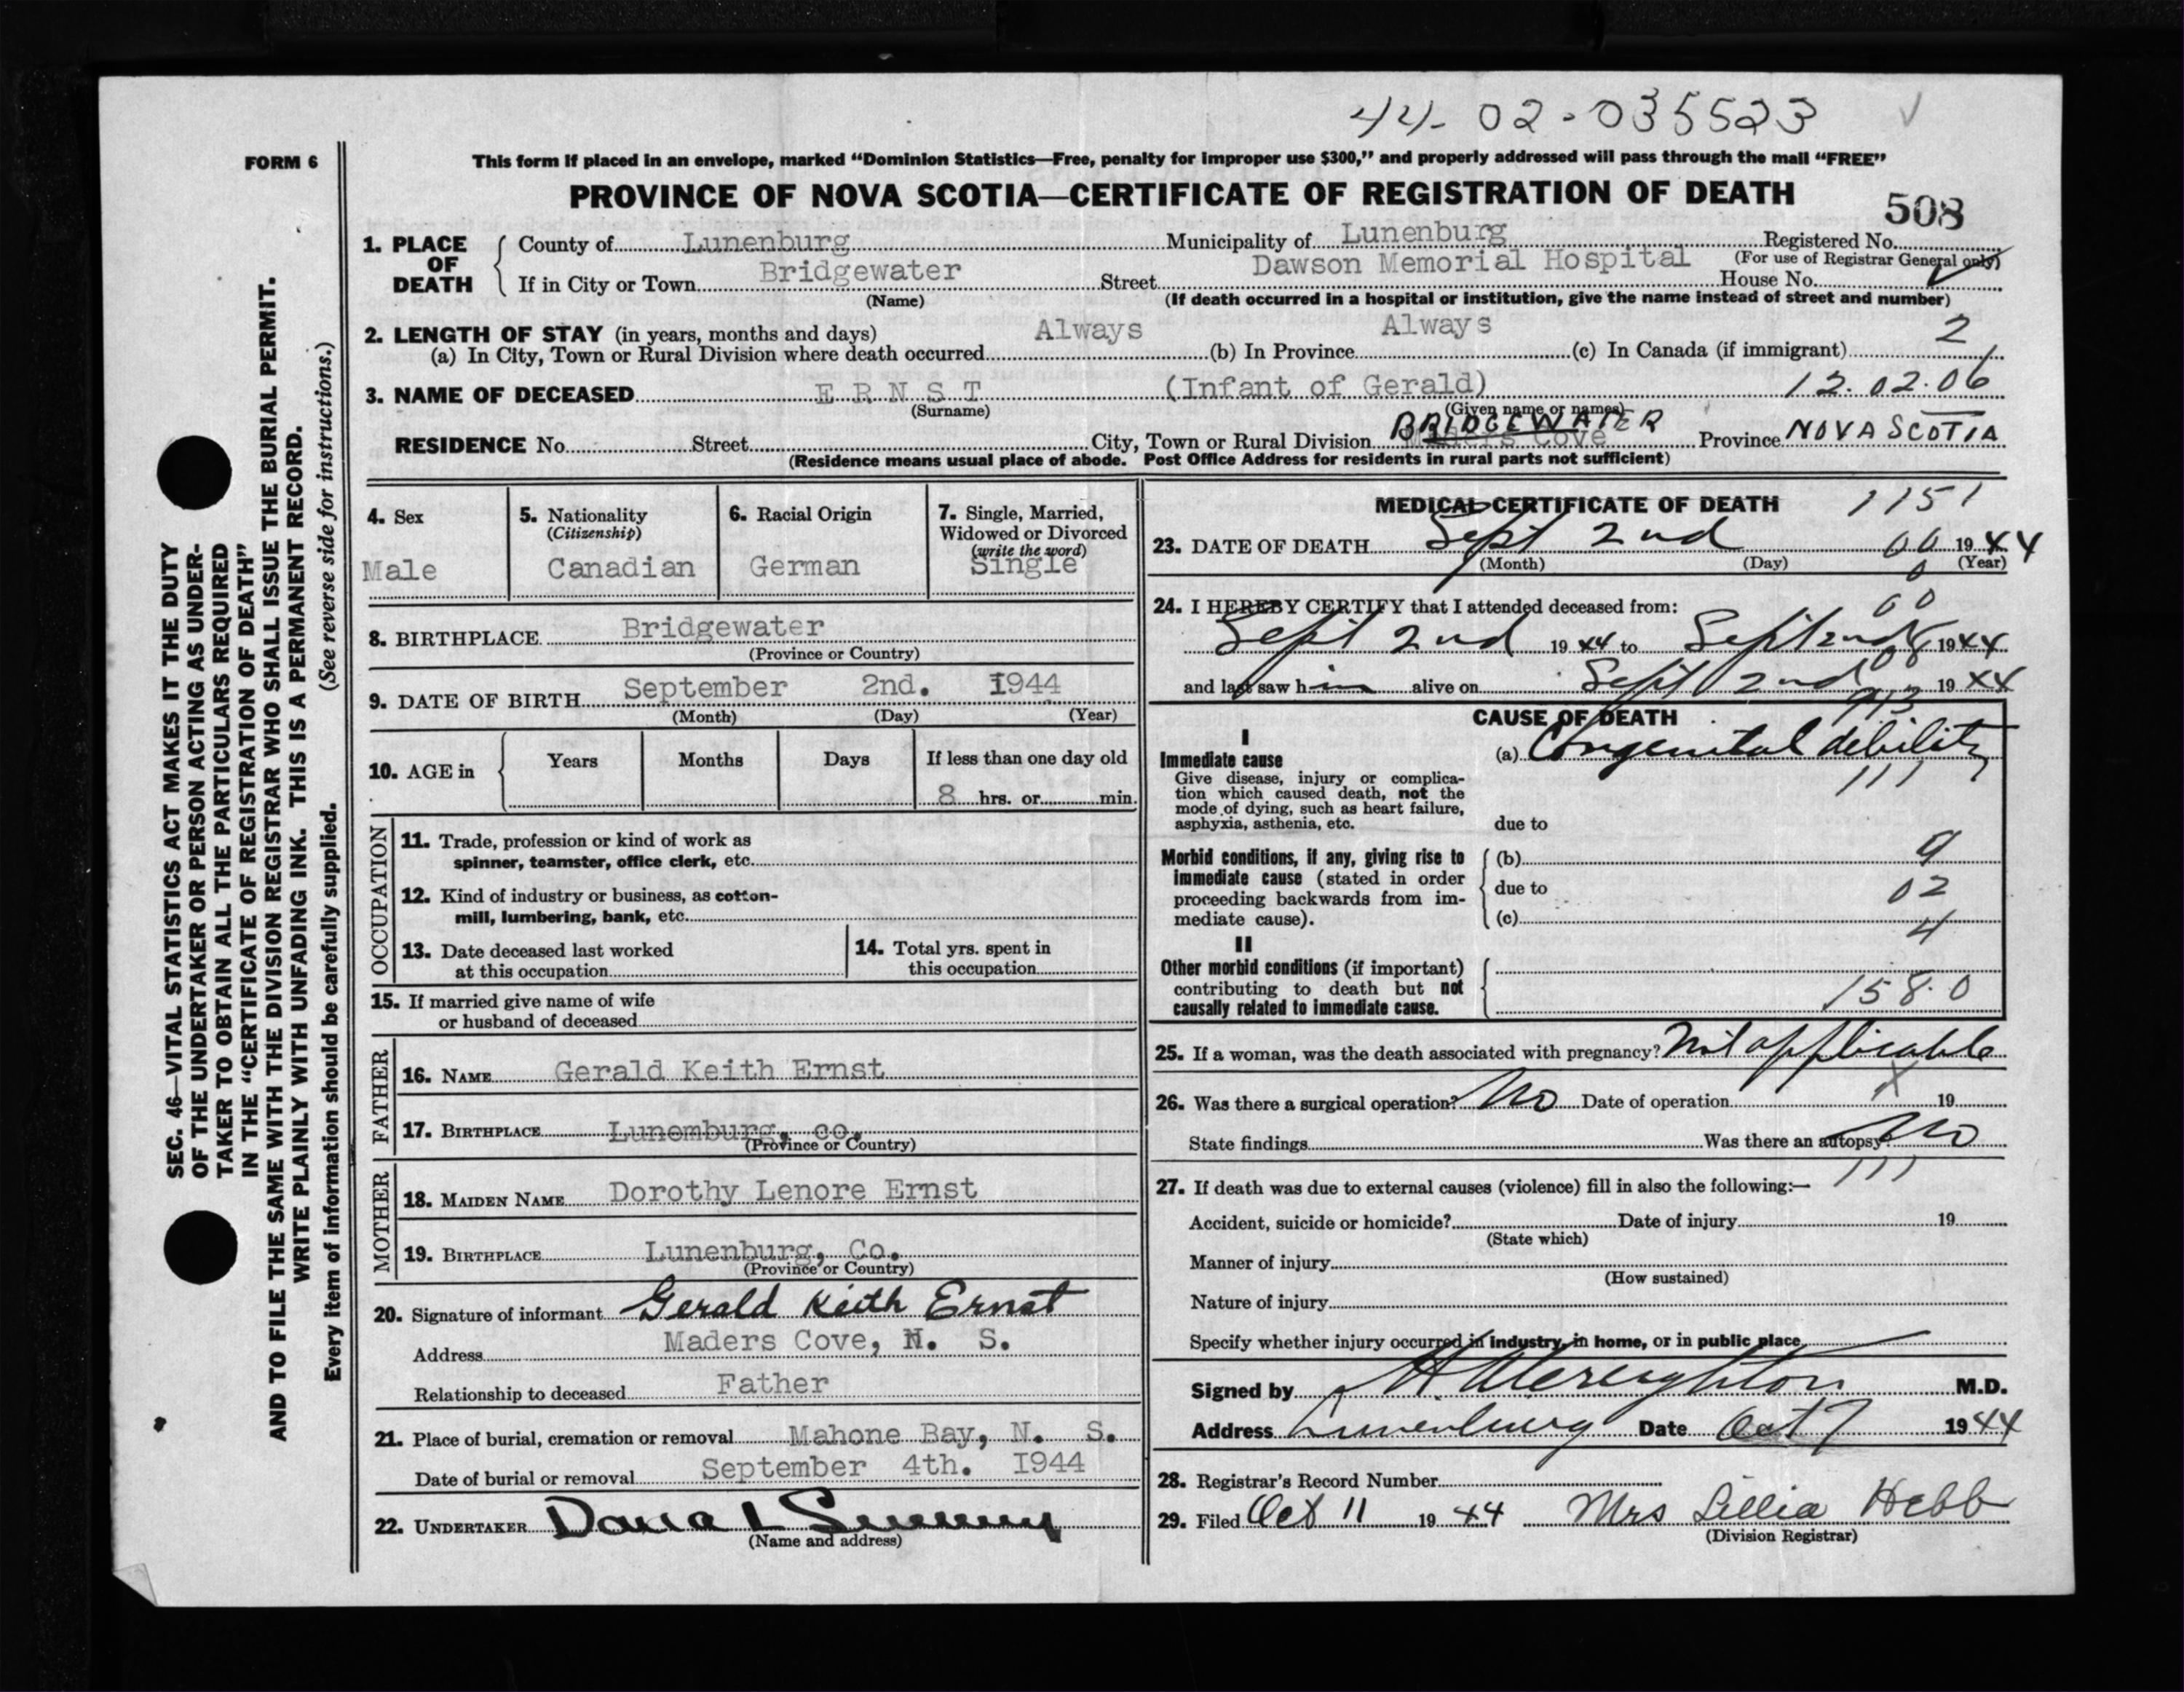 44-02-035523
FORM 6
This form if placed in an envelope, marked “Dominion Statistics—Free, penalty for improper use $300,” and properly addressed will pass through the mail “FREE”
PROVINCE OF NOVA SCOTIA—CERTIFICATE OF REGISTRATION OF DEATH
508
1. PLACE OF DEATH
County of Lunenburg Municipality of Lunenburg Registered No.
(For use of Registrar General only)
If in City or Town Bridgewater Street Dawson Memorial Hospital House No.
(Name)
(If death occurred in a hospital or institution, give the name instead of street and number)
2. LENGTH OF STAY (in years, months and days)
(a) In City, Town or Rural Division where death occurred Always (b) In Province Always (c) In Canada (if immigrant) 2
3. NAME OF DECEASED E R N S T (Infant of Gerald) 12.02.06
(Surname) (Given name or names)
RESIDENCE No. Street City, Town or Rural Division BRIDGEWATER Maders Cove Province NOVA SCOTIA
(Residence means usual place of abode. Post Office Address for residents in rural parts not sufficient)
4. Sex
Male
5. Nationality
(Citizenship)
Canadian
6. Racial Origin
German
7. Single, Married,
Widowed or Divorced
(write the word)
Single
8. BIRTHPLACE Bridgewater
(Province or Country)
9. DATE OF BIRTH September 2nd. I944
(Month) (Day) (Year)
10. AGE in Years Months Days If less than one day old
8 hrs. or min.
OCCUPATION
11. Trade, profession or kind of work as
spinner, teamster, office clerk, etc.
12. Kind of industry or business, as cotton-
mill, lumbering, bank, etc.
13. Date deceased last worked
at this occupation
14. Total yrs. spent in
this occupation
15. If married give name of wife
or husband of deceased
FATHER
16. NAME Gerald Keith Ernst
17. BIRTHPLACE Lunemburg, co.
(Province or Country)
MOTHER
18. MAIDEN NAME Dorothy Lenore Ernst
19. BIRTHPLACE Lunenburg, Co.
(Province or Country)
20. Signature of informant Gerald Keith Ernst
Address Maders Cove, N. S.
Relationship to deceased Father
21. Place of burial, cremation or removal Mahone Bay, N. S.
Date of burial or removal September 4th. I944
22. UNDERTAKER Dana L Sweeny
(Name and address)
MEDICAL CERTIFICATE OF DEATH
1151
23. DATE OF DEATH Sept 2nd 00 1944
(Month) (Day) (Year)
24. I HEREBY CERTIFY that I attended deceased from:
Sept 2nd 1944 to Sept 2nd 1944
and last saw him alive on Sept 2nd 1944
CAUSE OF DEATH
I
Immediate cause
Give disease, injury or complica-
tion which caused death, not the
mode of dying, such as heart failure,
asphyxia, asthenia, etc.
(a) Congenital debility
111
due to
Morbid conditions, if any, giving rise to
immediate cause (stated in order
proceeding backwards from im-
mediate cause).
(b) 9
due to 02
(c) 4
II
Other morbid conditions (if important)
contributing to death but not
causally related to immediate cause.
158.0
25. If a woman, was the death associated with pregnancy? Not applicable
26. Was there a surgical operation? No Date of operation X 19
State findings Was there an autopsy? No
111
27. If death was due to external causes (violence) fill in also the following:—
Accident, suicide or homicide? Date of injury 19
(State which)
Manner of injury
(How sustained)
Nature of injury
Specify whether injury occurred in industry, in home, or in public place
Signed by H A Creighton M.D.
Address Lunenburg Date Oct 7 1944
28. Registrar's Record Number
29. Filed Oct 11 1944 Mrs Lillia Hebb
(Division Registrar)
SEC. 46—VITAL STATISTICS ACT MAKES IT THE DUTY
OF THE UNDERTAKER OR PERSON ACTING AS UNDER-
TAKER TO OBTAIN ALL THE PARTICULARS REQUIRED
IN THE “CERTIFICATE OF REGISTRATION OF DEATH”
AND TO FILE THE SAME WITH THE DIVISION REGISTRAR WHO SHALL ISSUE THE BURIAL PERMIT.
WRITE PLAINLY WITH UNFADING INK. THIS IS A PERMANENT RECORD.
Every item of information should be carefully supplied. (See reverse side for instructions.)